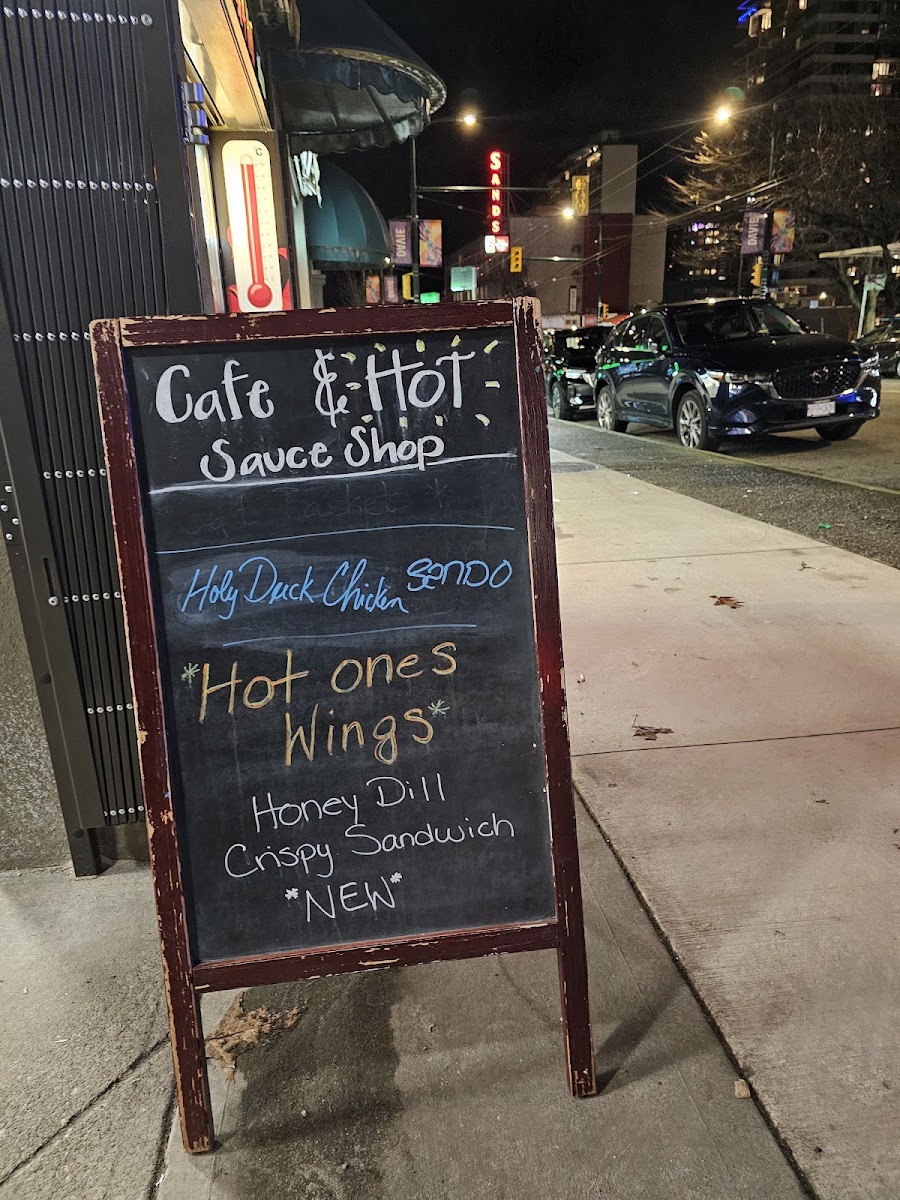 °C
SANDS
DAVIE
DAVIE
Cafe & Hot
Sauce Shop
Holy Duck Chicken SENDO
*Hot ones
Wings*
Honey Dill
Crispy Sandwich
*NEW*